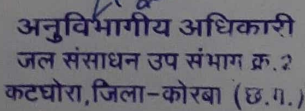 अनुविभागीय अधिकारी
जल संसाधन उप संभाग क्र.२
कटघोरा,जिला-कोरबा (छ.ग.)